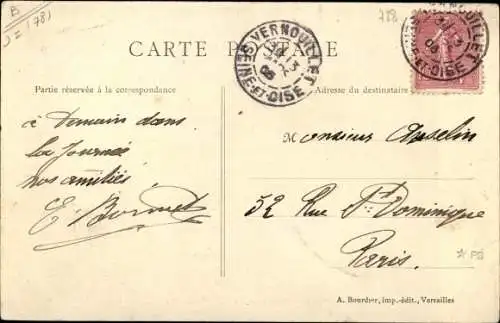 B
= (78)
788
CARTE POSTALE
VERNOUILLET
SEINE-ET-OISE
Partie réservée à la correspondance
Adresse du destinataire
à Demain dans
la Journée
nos amitiés
E. Bonnet
Monsieur Anselin
52 Rue St Dominique
Paris.
* PS
A. Bourdier, imp.-édit., Versailles